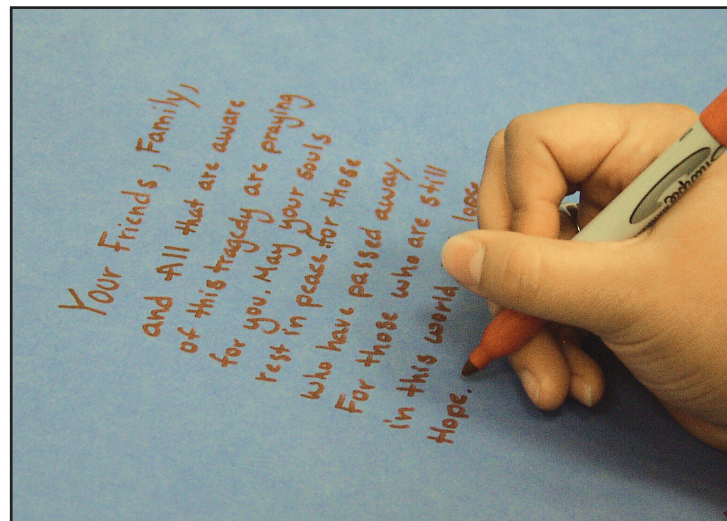 Your Friends, Family,
and All that are aware
of this tragedy are praying
for you. May your souls
rest in peace for those
who have passed away.
For those who are still
in this world lose
Hope.
Sharpie